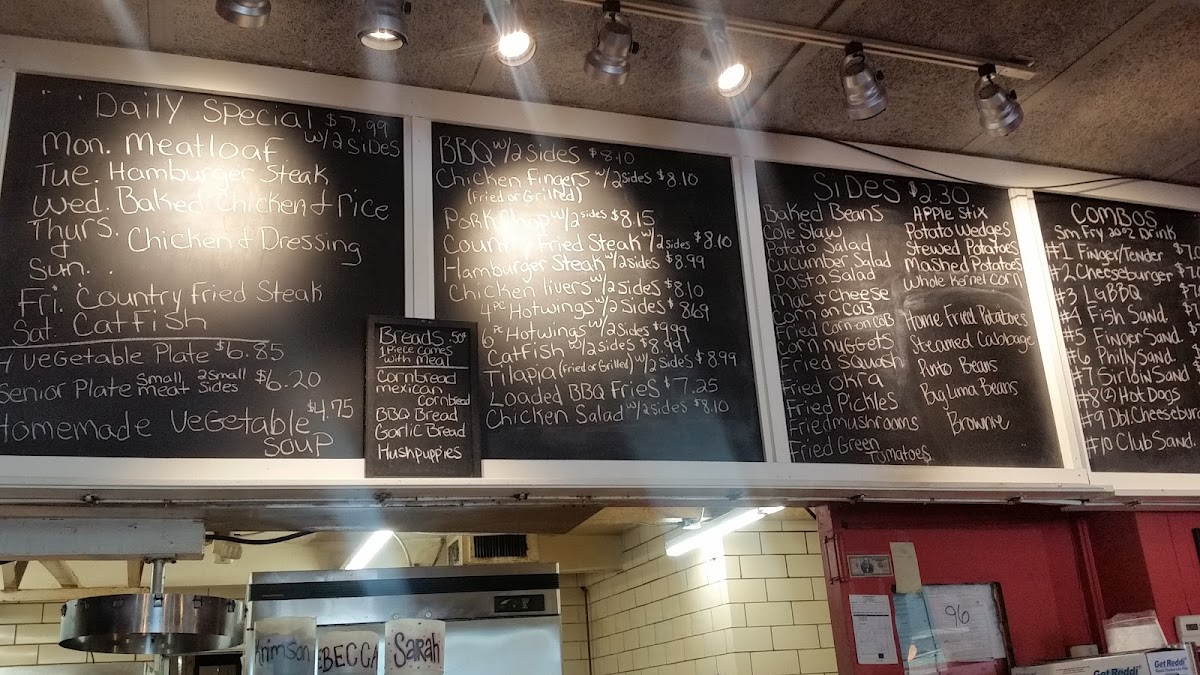 Daily Special $7.99
w/2 SiDeS
Mon. Meatloaf
Tue. Hamburger Steak
Wed. Baked Chicken & rice
Thurs.
& Chicken & Dressing
Sun.
Fri. Country Fried Steak
Sat. Catfish
4 Vegetable Plate $6.85
Senior Plate small meat 2 small sides $6.20
Homemade Vegetable $4.75
Soup
Breads .50¢
1 Piece comes
with meal
Cornbread
mexican
Cornbread
BBQ Bread
Garlic Bread
Hushpuppies
BBQ w/2 Sides $8.10
Chicken Fingers w/2 sides $8.10
(Fried or Grilled)
Pork Chop w/2 sides $8.15
Country Fried Steak w/2 sides $8.10
Hamburger Steak w/2 sides $8.99
Chicken livers w/2 Sides $8.10
4 Pc Hotwings w/2 Sides $8.69
6 Pc Hotwings w/2 Sides $9.99
Catfish w/2 Sides $8.99
Tilapia (Fried or Grilled) w/2 Sides $8.99
Loaded BBQ Fries $7.25
Chicken Salad w/2 sides $8.10
SiDeS $2.30
Baked Beans
Cole Slaw
Potato Salad
Cucumber Salad
Pasta Salad
Mac & Cheese
Corn on COB
Fried Corn on COB
Corn nuggets
Fried Squash
Fried Okra
Fried Pickles
Fried mushrooms
Fried Green
Tomatoes
Apple Stix
Potato Wedges
Stewed Potatoes
Mashed Potatoes
Whole Kernel Corn
Home Fried Potatoes
Steamed Cabbage
Pinto Beans
Big Lima Beans
Brownie
Combos
Sm Fry 20oz Drink
#1 Finger/Tender $7.
#2 Cheeseburger
#3 Lg BBQ
#4 Fish Sand.
#5 Finger Sand.
#6 Philly Sand.
#7 Sirloin Sand
#8 (2) Hot Dogs
#9 Dbl. Cheesebur
#10 Club Sand.
BECCA
Sarah
96
Get Reddi
Get Reddi